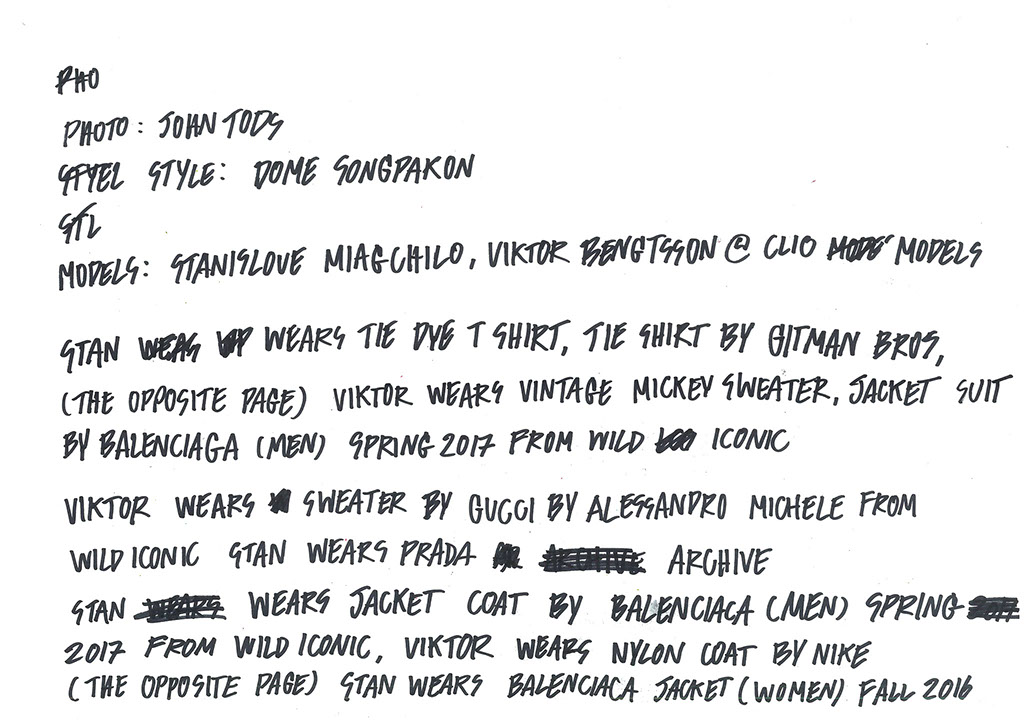 PHO
PHOTO: JOHN TODS
STYEL STYLE: DOME SONGPAKON
STL
MODELS: STANISLOVE MIAGCHILO, VIKTOR BENGTSSON @ CLIO MODE MODELS
STAN WEAS UP WEARS TIE DYE T SHIRT, TIE SHIRT BY GITMAN BROS,
(THE OPPOSITE PAGE) VIKTOR WEARS VINTAGE MICKEY SWEATER, JACKET SUIT
BY BALENCIAGA (MEN) SPRING 2017 FROM WILD ICONIC
VIKTOR WEARS SWEATER BY GUCCI BY ALESSANDRO MICHELE FROM
WILD ICONIC STAN WEARS PRADA ARCHIVE ARCHIVE
STAN WEARS WEARS JACKET COAT BY BALENCIACA (MEN) SPRING 2017
2017 FROM WILD ICONIC, VIKTOR WEARS NYLON COAT BY NIKE
(THE OPPOSITE PAGE) STAN WEARS BALENCIACA JACKET (WOMEN) FALL 2016